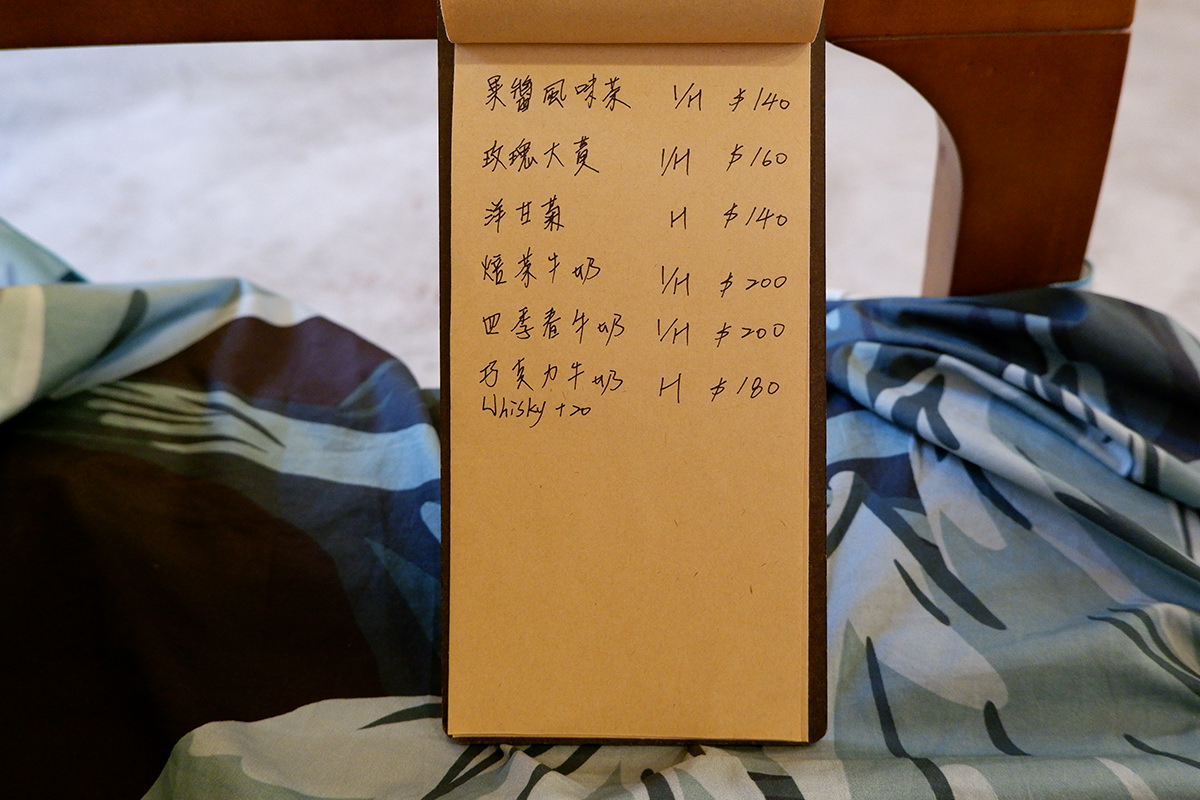 果醬風味茶 I/H $140
玫瑰大黃 I/H $160
洋甘菊 H $140
焙茶牛奶 I/H $200
四季春牛奶 I/H $200
巧克力牛奶 H $180
Whisky +20